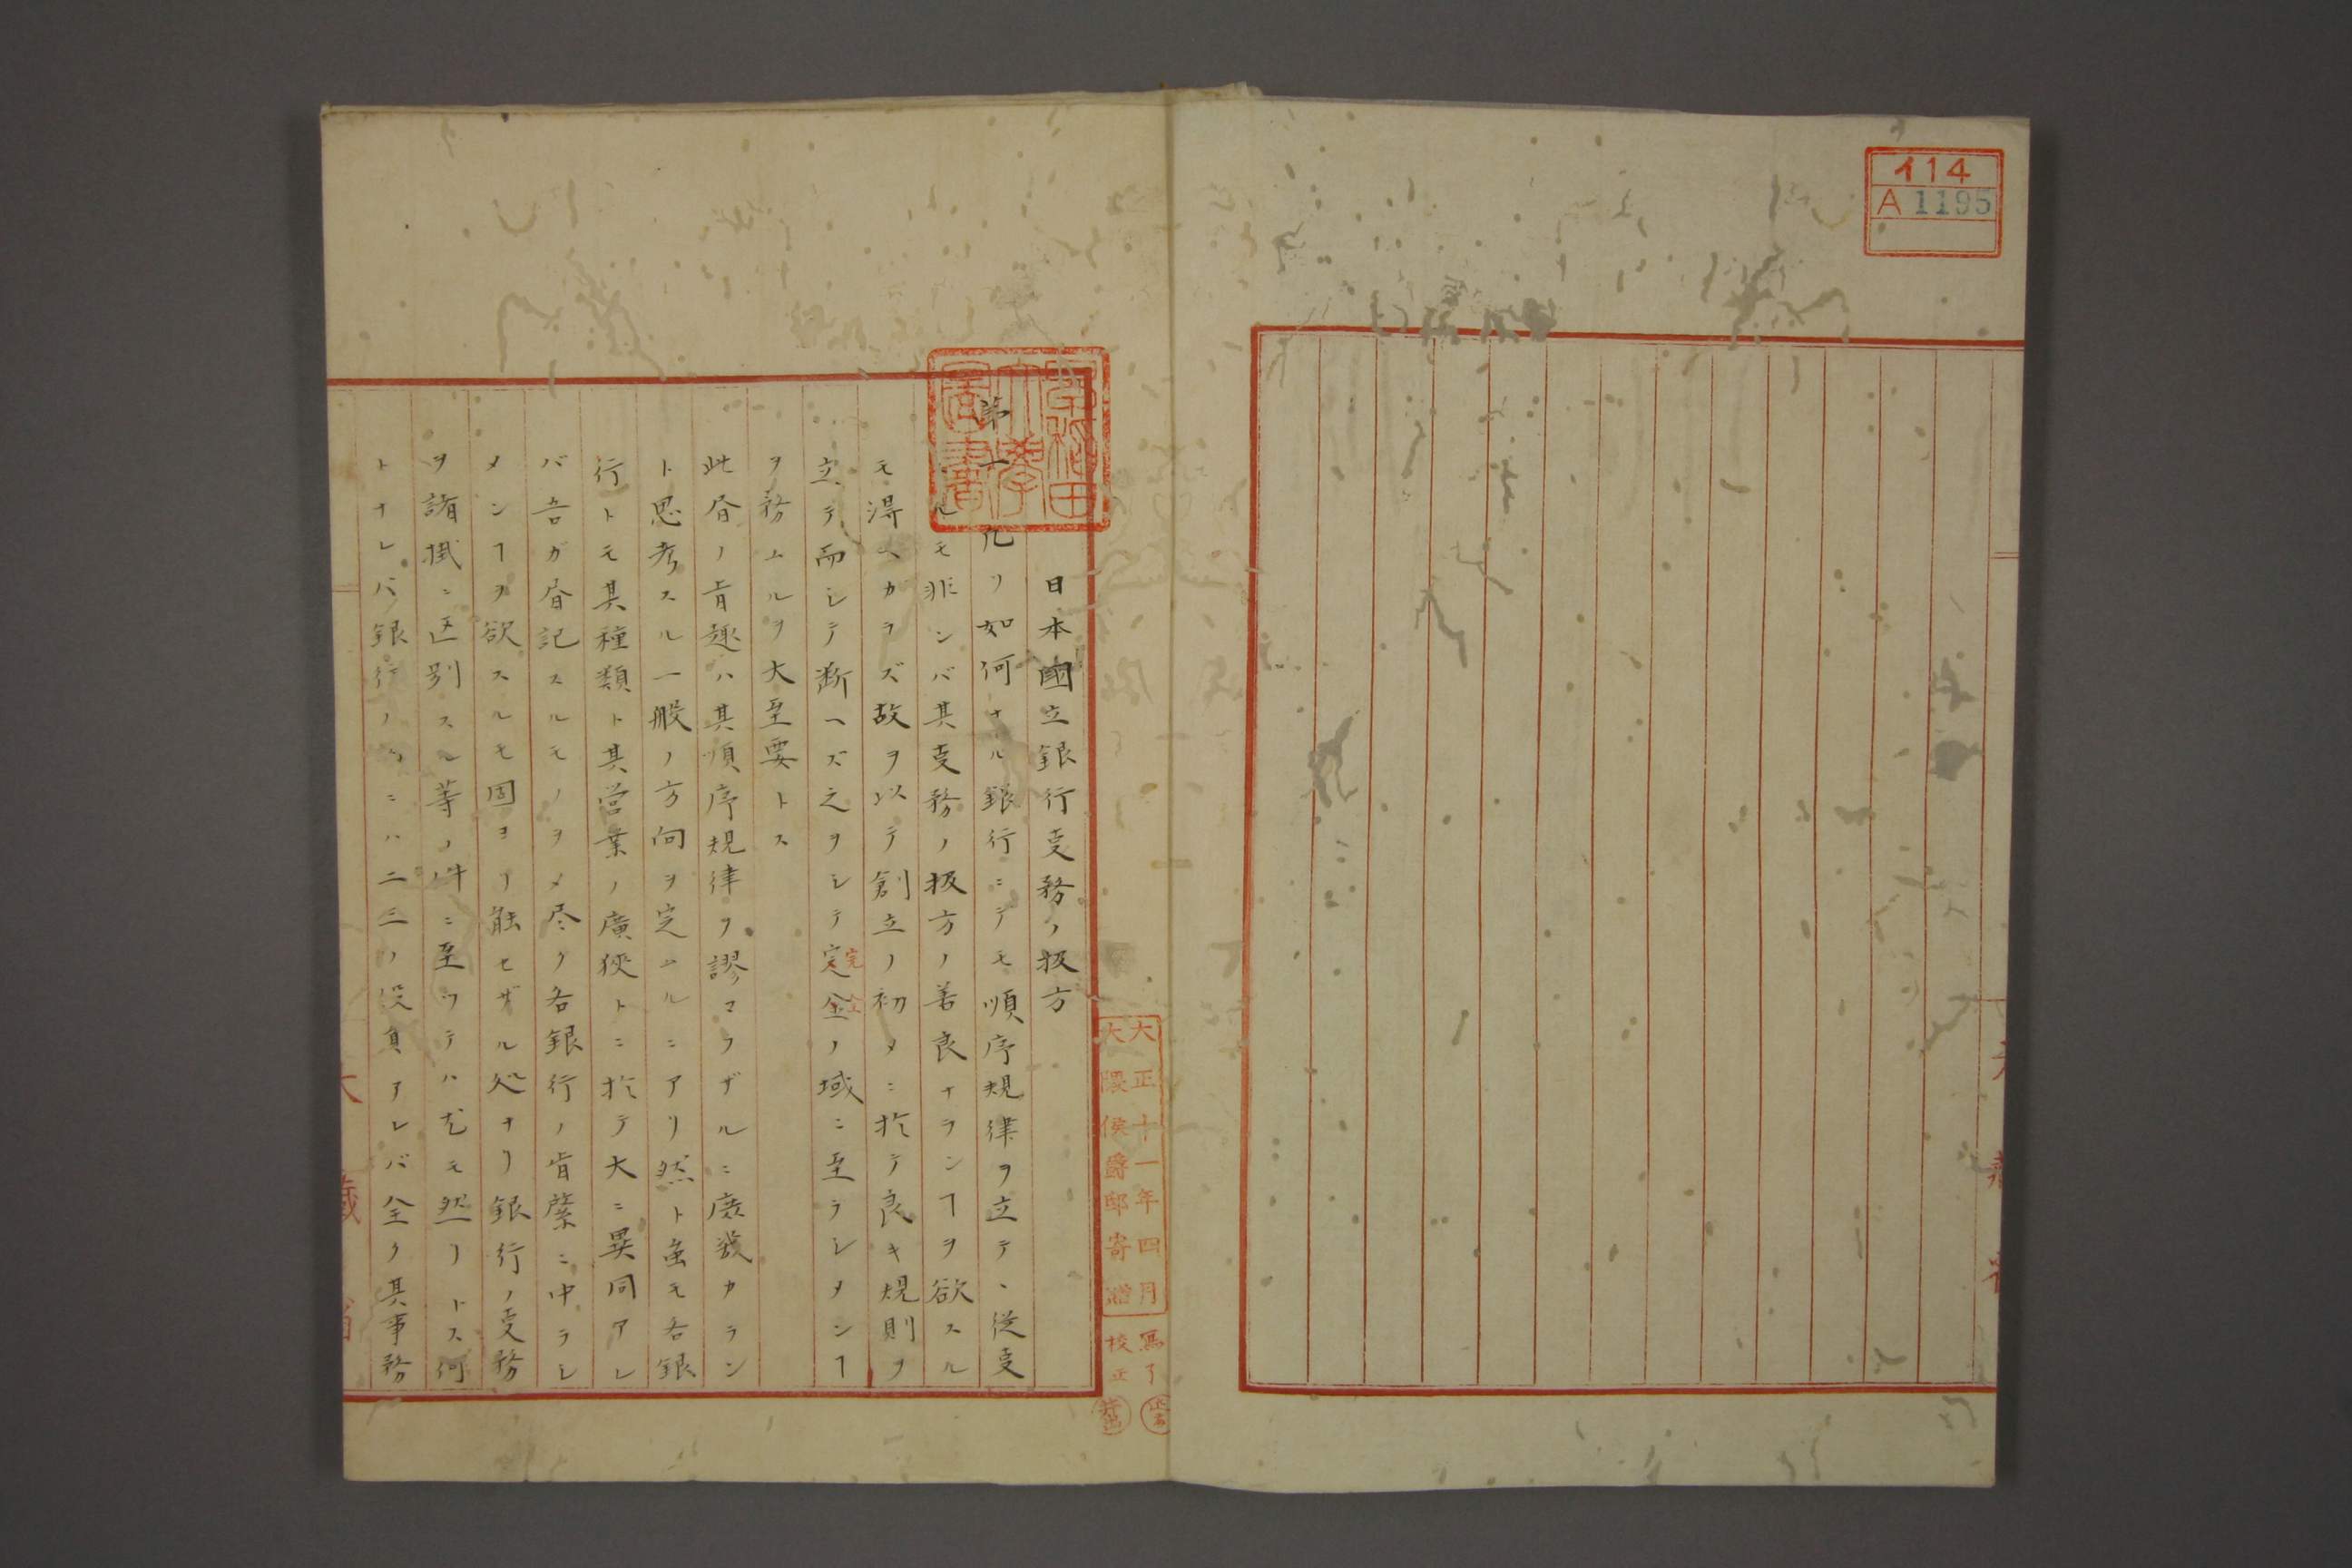 イ14
A 1195
大藏省
早稲田
大學
圖書
大正十一年四月
大隈侯爵邸寄贈
寫了
校正
日本國立銀行事務ノ扱方
第一 凡ソ如何ナル銀行ニテモ順序規律ヲ立テ、従事
モ非ンバ其事務ノ扱方ノ善良ナランヿヲ欲スル
モ得ベカラズ故ヲ以テ創立ノ初メニ於テ良キ規則ヲ
立テ而シテ断ヘズ之ヲシテ完全ノ域ニ至ラシメンヿ
ヲ務ムルヲ大至要トス
此書ノ旨趣ハ其順序規律ヲ謬マラザルニ庶幾カラン
ト思考スル一般ノ方向ヲ定ムルニアリ然ト虽モ各銀
行トモ其種類ト其営業ノ廣狹トニ於テ大ニ異同アレ
バ吾ガ書記スルモノヲメ尽ク各銀行ノ肯綮ニ中ラシ
メンヿヲ欲スルモ固ヨリ能セザル処ナリ銀行ノ事務
ヲ諸掛ニ区別スル等ノ件ニ至ツテハ尤モ然リトス何
トナレバ銀行ノ ニハ二三ノ役員アレバ全ク其事務
大藏省